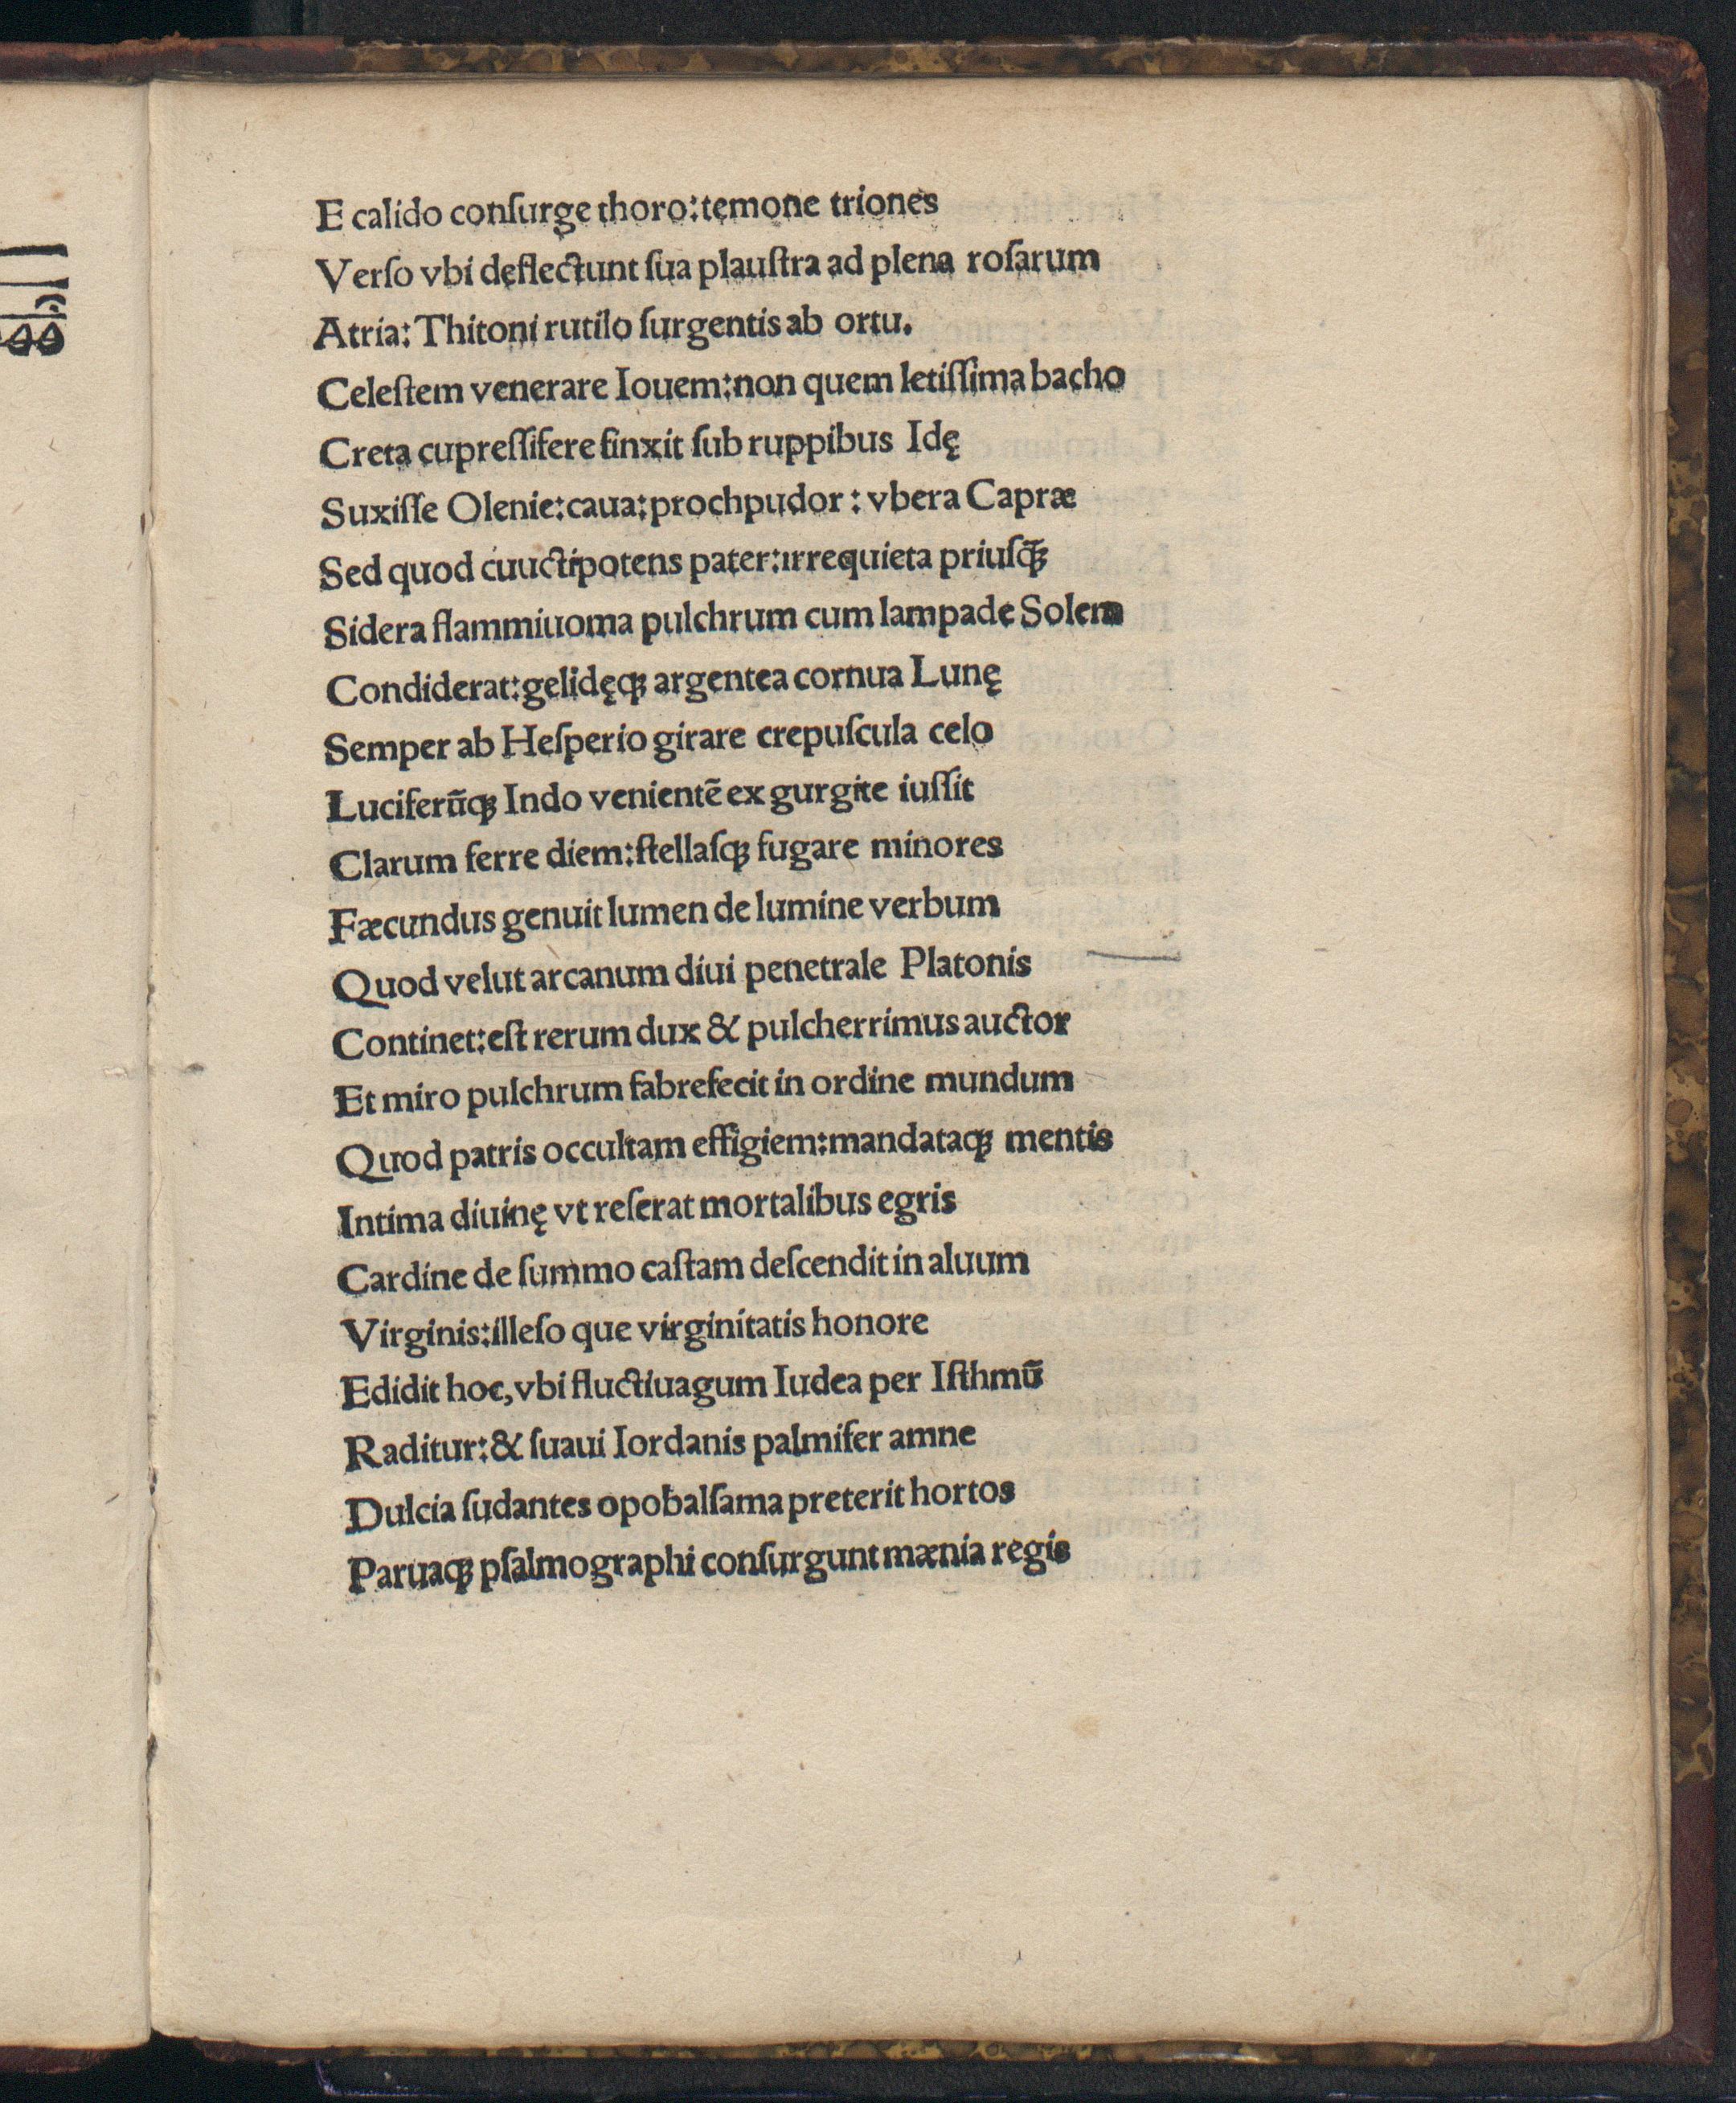 E calido conſurge thoro: temone triones
Verſo vbi deflectunt ſua plauſtra ad plena roſarum
Atria: Thitoni rutilo ſurgentis ab ortu.
Celeſtem venerare Iouem: non quem letiſſima bacho
Creta cupreſſifere finxit ſub ruppibus Idę
Suxiſſe Olenie: caua: prochpudor : vbera Capræ
Sed quod cuuctipotens pater: ırrequieta priuſꝙ̃
Sidera flammiuoma pulchrum cum lampade Solem
Condiderat: gelidęqꝫ argentea cornua Lunę
Semper ab Heſperio girare crepuſcula celo
Luciferūqꝫ Indo venientē ex gurgite iuſſit
Clarum ferre diem: ſtellaſqꝫ fugare minores
Fæcundus genuit lumen de lumine verbum
Quod velut arcanum diui penetrale Platonis
Continet: eſt rerum dux & pulcherrimus auctor
Et miro pulchrum fabrefecit in ordine mundum
Quod patris occultam effigiem: mandataqꝫ mentis
Intima diuinę vt reſerat mortalibus egris
Cardine de ſummo caſtam deſcendit in aluum
Virginis: illeſo que virginitatis honore
Edidit hoc, vbi fluctiuagum Iudea per Iſthmū
Raditur: & ſuaui Iordanis palmifer amne
Dulcia ſudantes opobalſama preterit hortos
Paruaqꝫ pſalmographi conſurgunt mænia regis